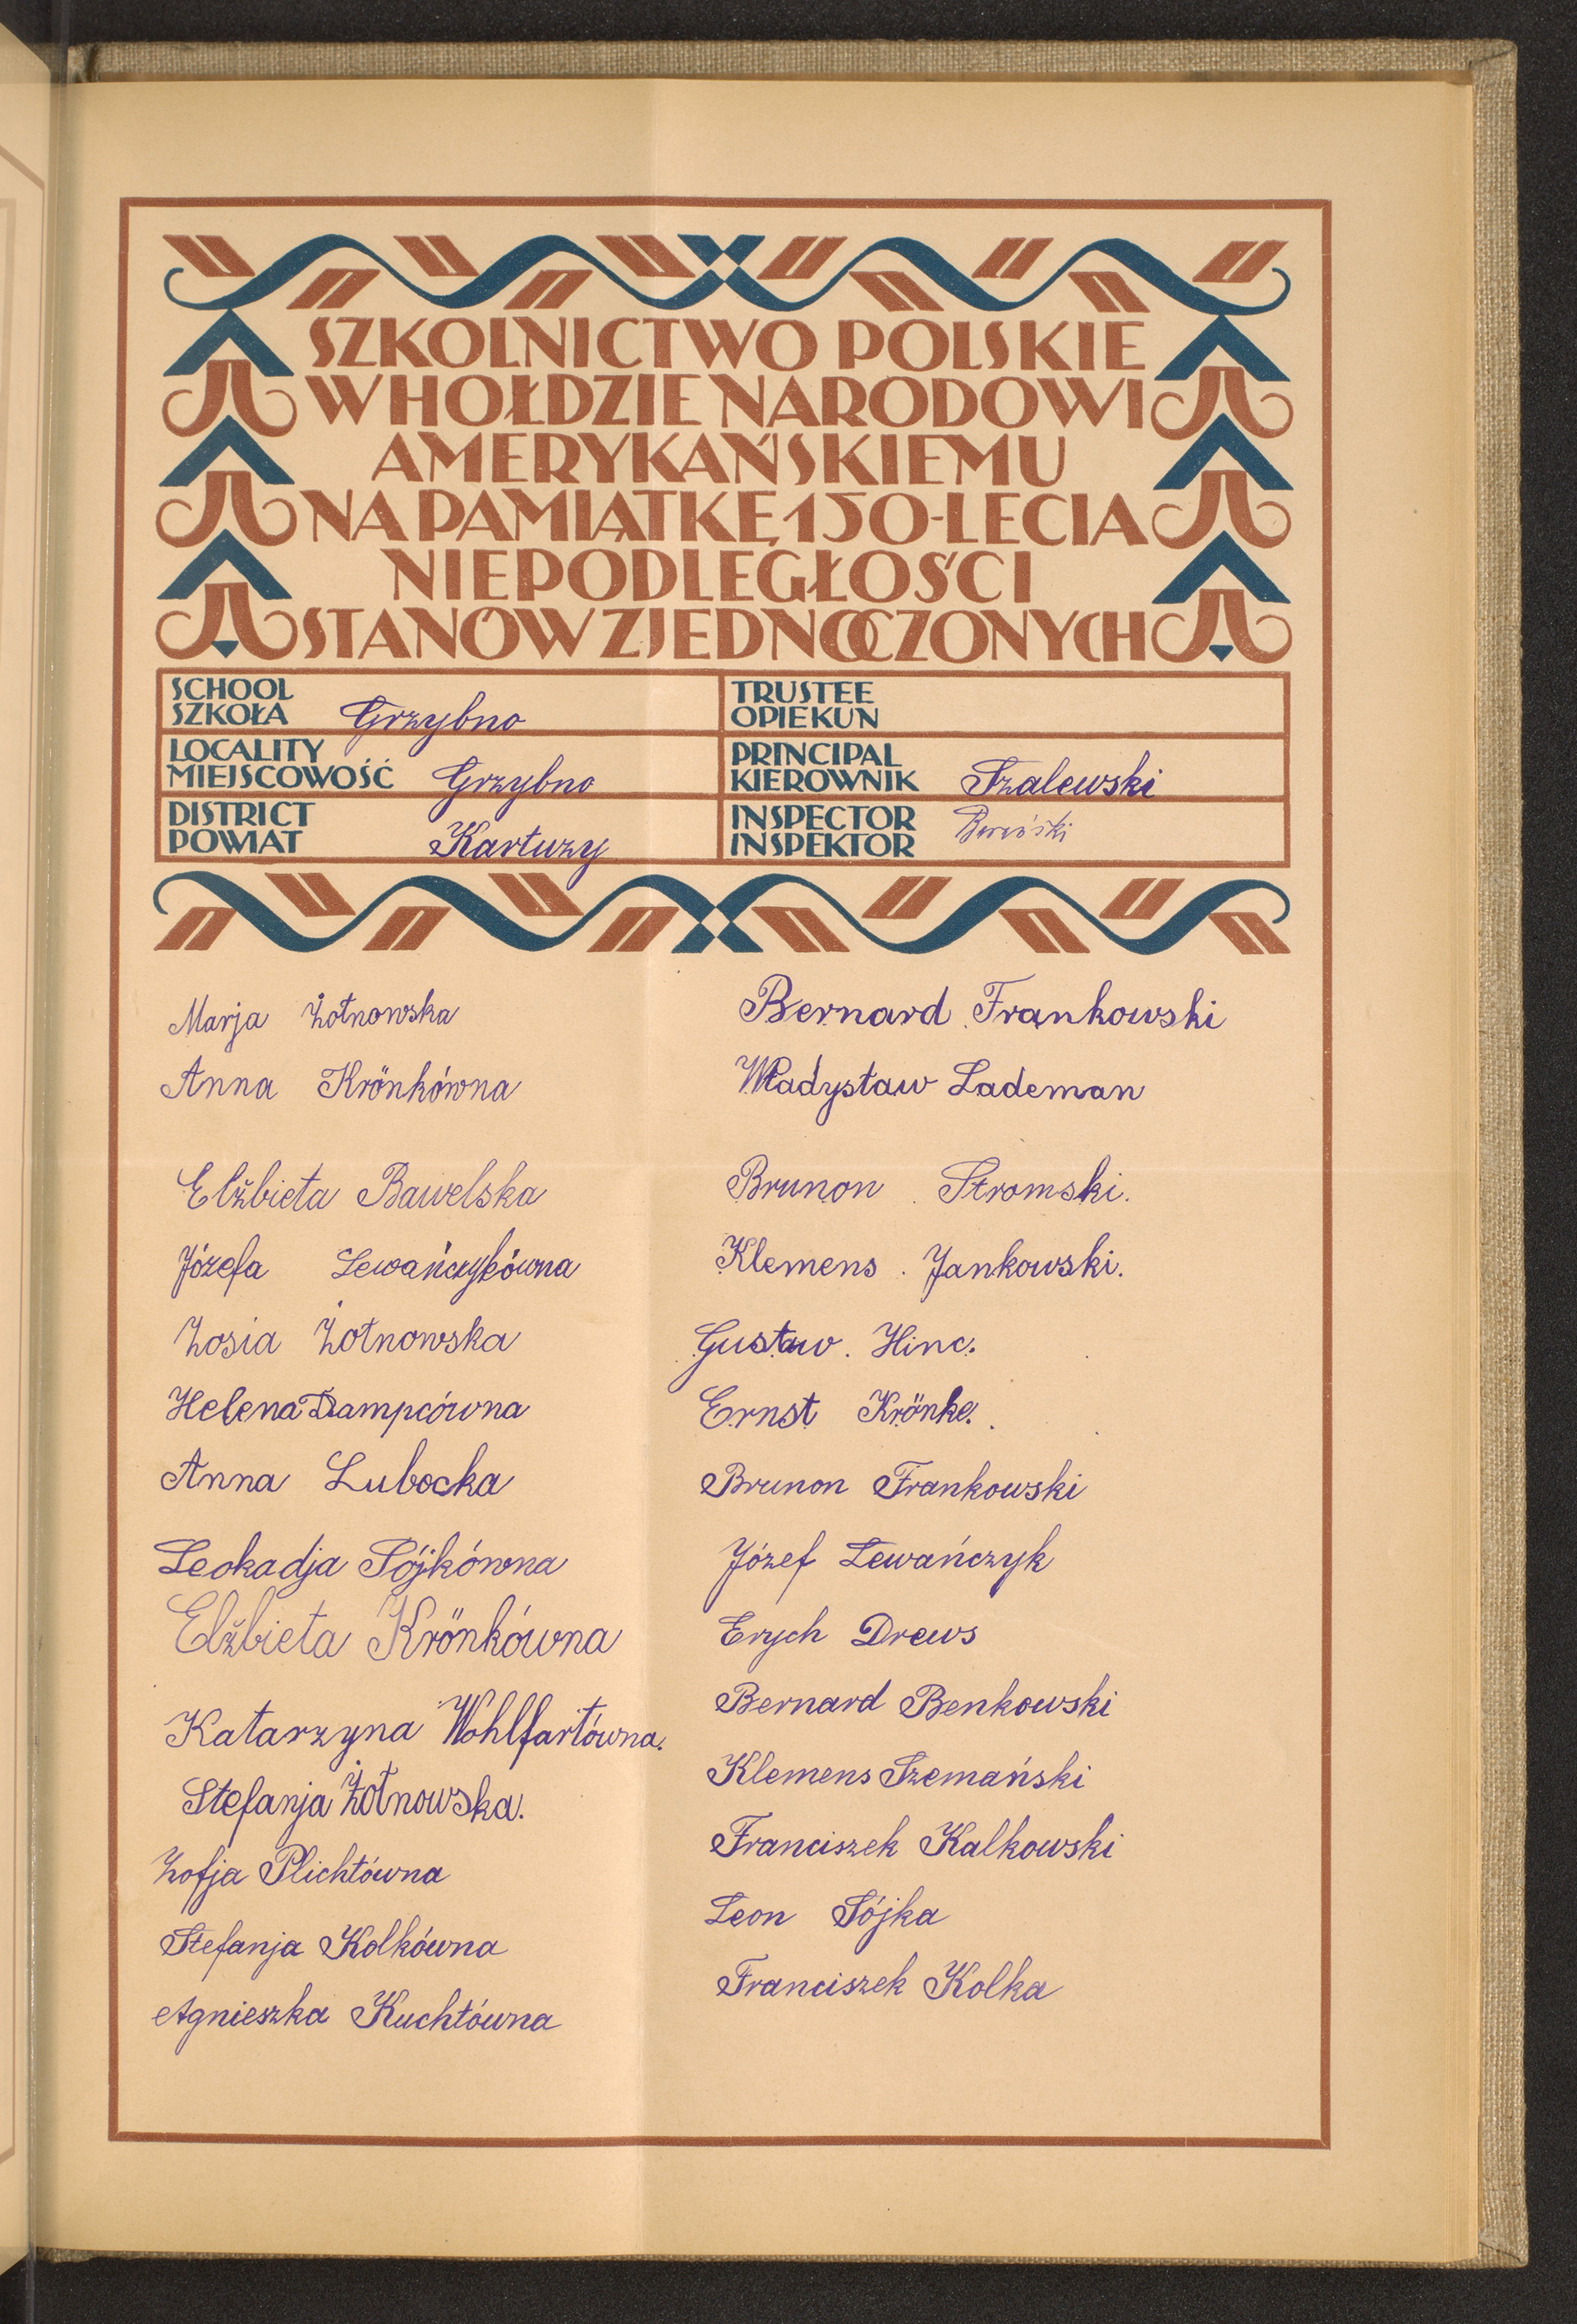 SZKOLNICTWO POLSKIE
W HOŁDZIE NARODOWI
AMERYKAŃSKIEMU
NA PAMIĄTKĘ 150-LECIA
NIEPODLEGŁOŚCI
STANÓW ZJEDNOCZONYCH
SCHOOL
SZKOŁA Grzybno
LOCALITY
MIEJSCOWOŚĆ Grzybno
DISTRICT
POWIAT Kartuzy
TRUSTEE
OPIEKUN
PRINCIPAL
KIEROWNIK Szalewski
INSPECTOR
INSPEKTOR
Marja Żołnowska
Anna Krönkówna
Elżbieta Bawelska
Józefa Lewańczykówna
Zosia Żołnowska
Helena Dampcówna
Anna Lubocka
Leokadja Sójkówna
Elżbieta Krönkówna
Katarzyna Wohlfartówna.
Stefanja Żołnowska.
Zofja Plichtówna
Stefanja Kolkówna
Agnieszka Kuchtówna
Bernard Frankowski
Władysław Lademan
Brunon Stromski.
Klemens Jankowski.
Gustaw. Hinc.
Ernst Krönke.
Brunon Frankowski
Józef Lewańczyk
Erych Drews
Bernard Benkowski
Klemens Szemański
Franciszek Kalkowski
Leon Sójka
Franciszek Kolka